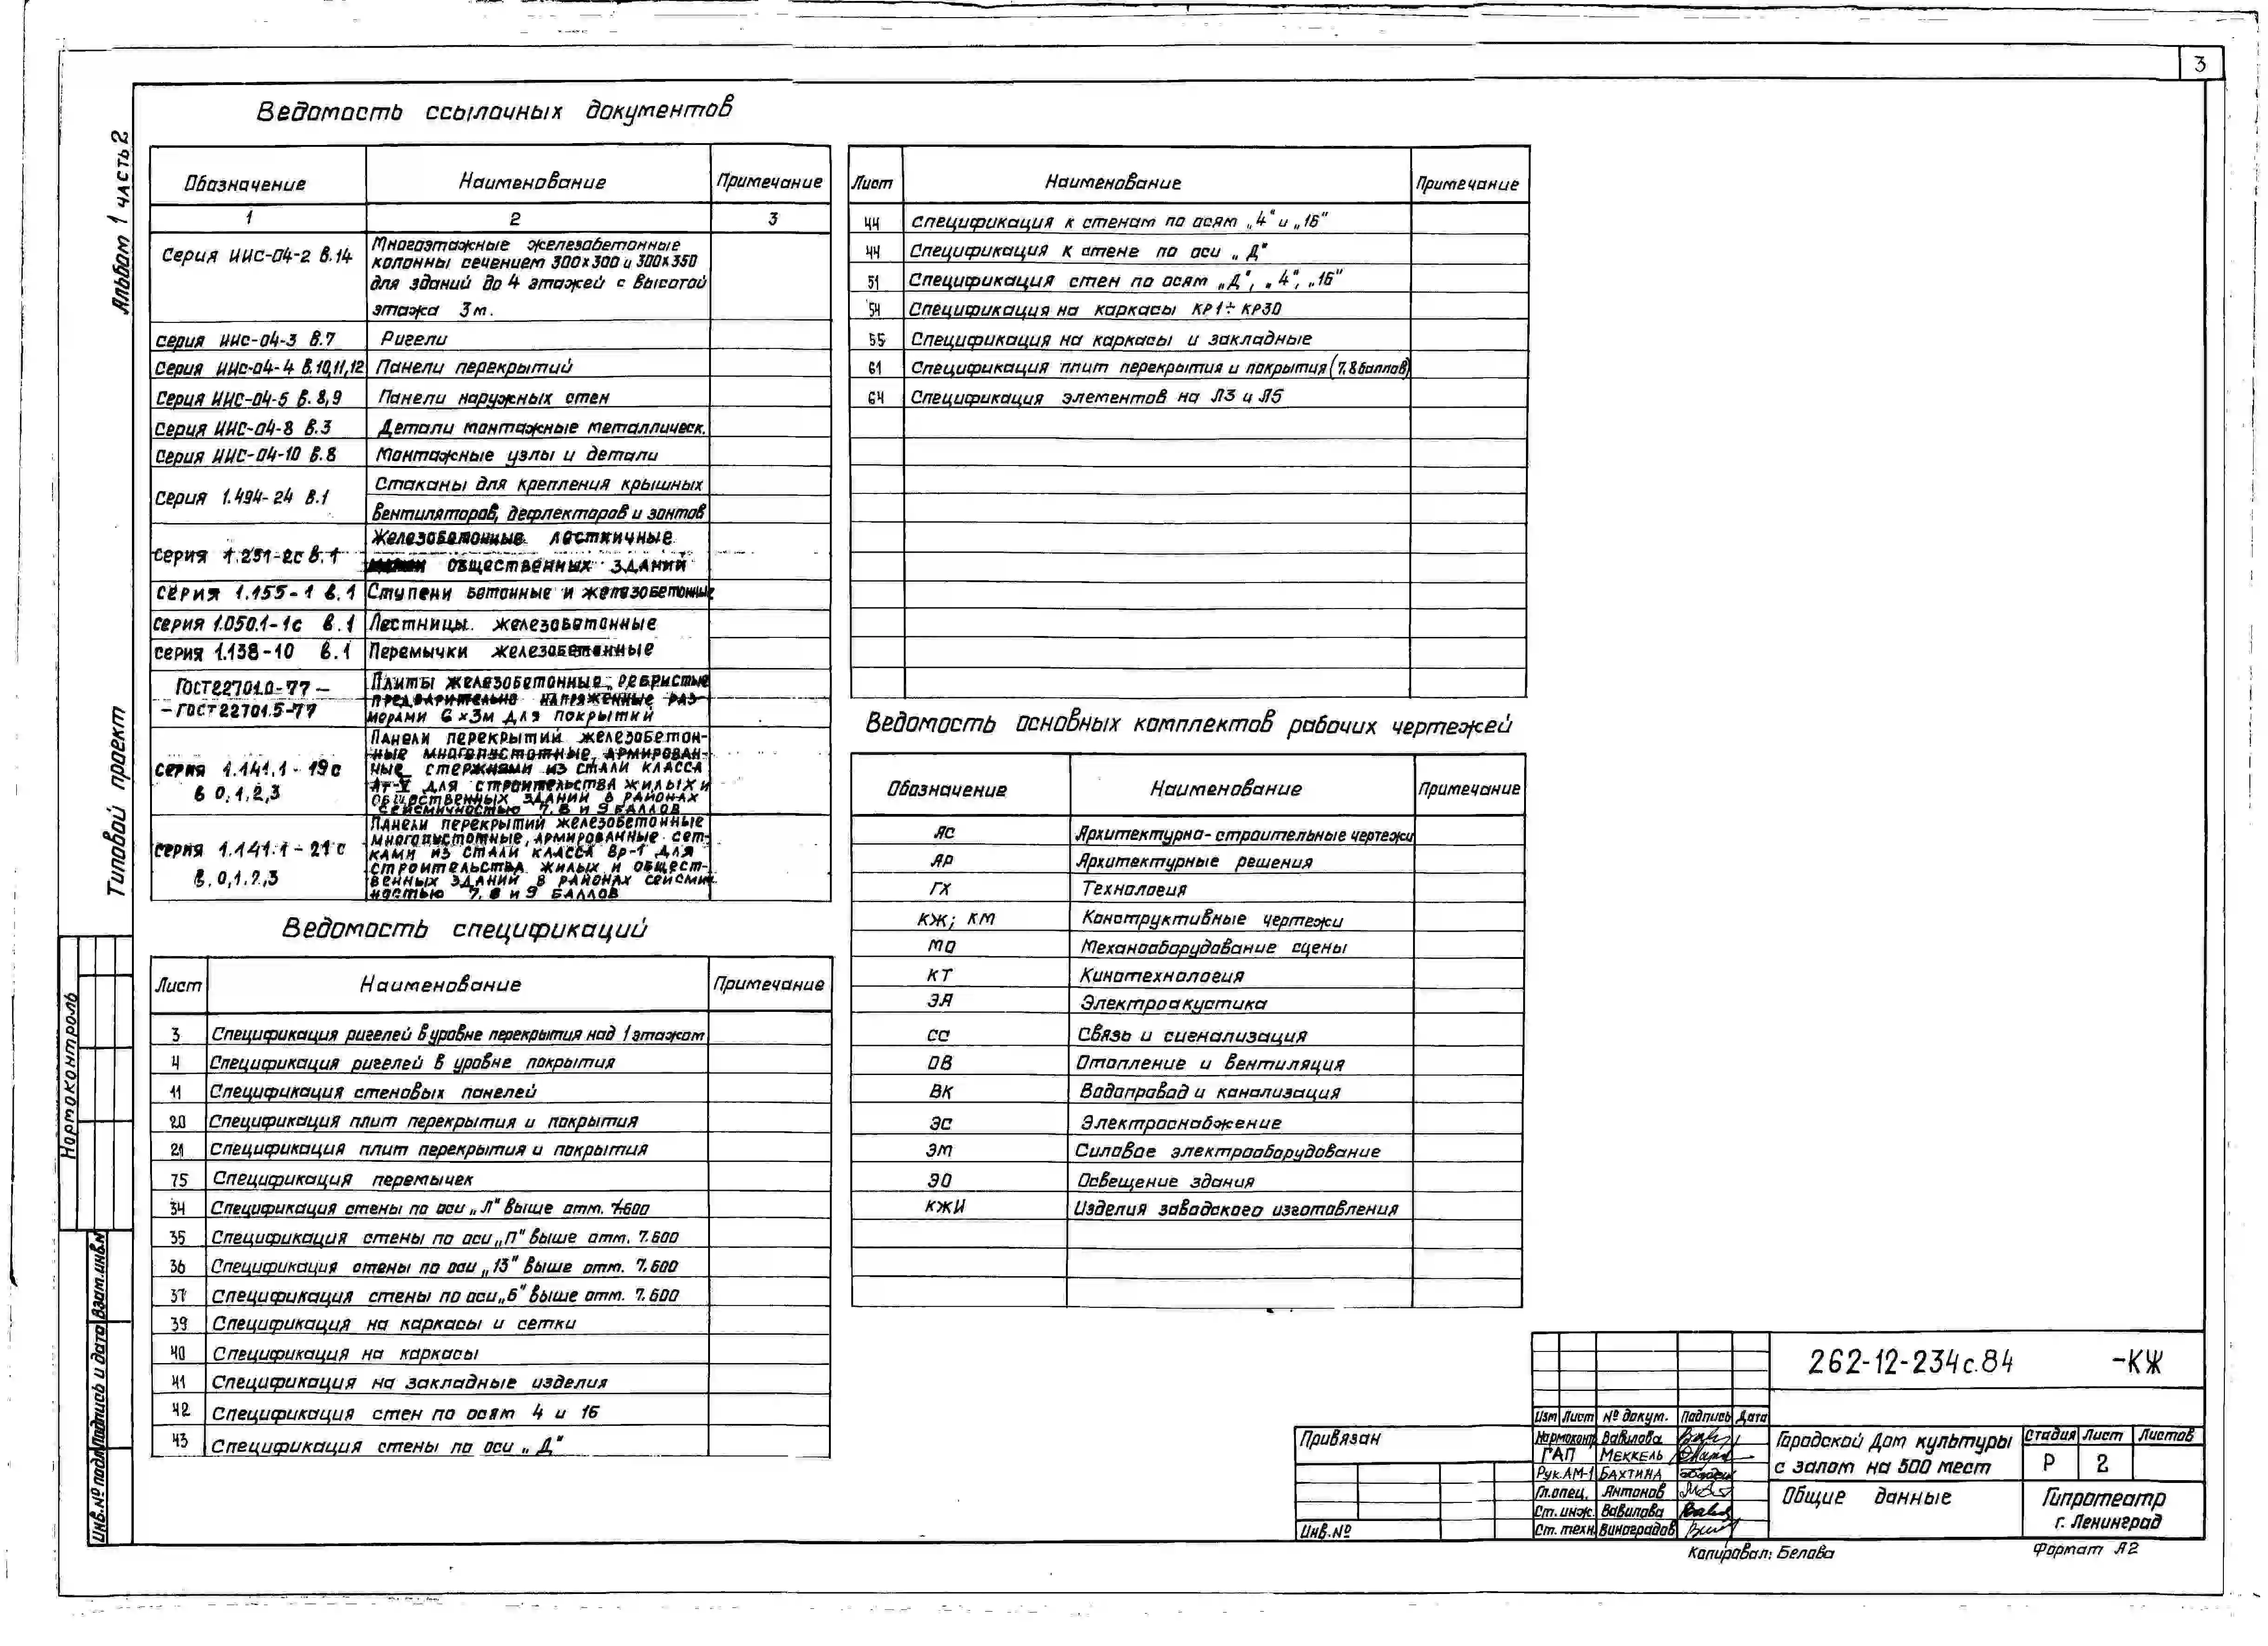 3
Альбом 1 часть 2
Типовой проект
Нормоконтроль
Взам.инв.№
Подпись и дата
Инв.№ подл.
Ведомость ссылочных документов
Обозначение Наименование Примечание
1 2 3
Серия ИИС-04-2 в.14 Многоэтажные железобетонные
колонны сечением 300х300 и 300х350
для зданий до 4 этажей с высотой
этажа 3м.
серия ИИС-04-3 в.7 Ригели
Серия ИИС-04-4 в.10,11,12 Панели перекрытий
Серия ИИС-04-5 в.8,9 Панели наружных стен
Серия ИИС-04-8 в.3 Детали монтажные металлическ.
Серия ИИС-04-10 в.8 Монтажные узлы и детали
Серия 1.494-24 в.1 Стаканы для крепления крышных
вентиляторов, дефлекторов и зонтов
серия 1.251-2с в.1 Железобетонные лестничные
общественных зданий
серия 1.155-1 в.1 Ступени бетонные и железобетонные
серия 1.050.1-1с в.1 Лестницы железобетонные
серия 1.138-10 в.1 Перемычки железобетонные
ГОСТ22701.0-77 – Плиты железобетонные ребристые
– ГОСТ22701.5-77 предварительно напряженные раз-
мерами 6х3м для покрытий
серия 1.141.1-19с Панели перекрытий железобетон-
в 0,1,2,3 ные многопустотные, армирован-
ные стержнями из стали класса
Ат-V для строительства жилых и
общественных зданий в районах
сейсмичностью 7,8 и 9 баллов
серия 1.141.1-21с Панели перекрытий железобетонные
в.0,1,2,3 многопустотные, армированные сет-
ками из стали класса Вр-1 для
строительства жилых и общест-
венных зданий в районах сейсмич-
ностью 7,8 и 9 баллов
Ведомость спецификаций
Лист Наименование Примечание
3 Спецификация ригелей в уровне перекрытия над 1 этажом
4 Спецификация ригелей в уровне покрытия
11 Спецификация стеновых панелей
20 Спецификация плит перекрытия и покрытия
21 Спецификация плит перекрытия и покрытия
75 Спецификация перемычек
34 Спецификация стены по оси „Л" выше отм. 7.600
35 Спецификация стены по оси „П" выше отм. 7.600
36 Спецификация стены по оси „13" выше отм. 7.600
37 Спецификация стены по оси „6" выше отм. 7.600
39 Спецификация на каркасы и сетки
40 Спецификация на каркасы
41 Спецификация на закладные изделия
42 Спецификация стен по осям 4 и 16
43 Спецификация стены по оси „Д"
Лист Наименование Примечание
44 Спецификация к стенам по осям „4" и „16"
44 Спецификация к стене по оси „Д"
51 Спецификация стен по осям „Д", „4", „16"
54 Спецификация на каркасы КР1÷КР30
55 Спецификация на каркасы и закладные
61 Спецификация плит перекрытия и покрытия (7,8 баллов)
64 Спецификация элементов на Л3 и Л5
Ведомость основных комплектов рабочих чертежей
Обозначение Наименование Примечание
АС Архитектурно-строительные чертежи
АР Архитектурные решения
ТХ Технология
КЖ; КМ Конструктивные чертежи
МО Механооборудование сцены
КТ Кинотехнология
ЭА Электроакустика
СС Связь и сигнализация
ОВ Отопление и вентиляция
ВК Водопровод и канализация
ЭС Электроснабжение
ЭМ Силовое электрооборудование
ЭО Освещение здания
КЖИ Изделия заводского изготовления
Привязан
Инв.№
262-12-234с.84 -КЖ
Изм Лист № докум. Подпись Дата
Нормоконтр Вавилова
ГАП Меккель
Рук.АМ-1 Бахтина
Гл.спец. Антонов
Ст.инж. Вавилова
Ст.техн. Виноградов
Городской Дом культуры
с залом на 500 мест
Стадия Лист Листов
Р 2
Общие данные
Гипротеатр
г. Ленинград
Копировал: Белова
Формат А2